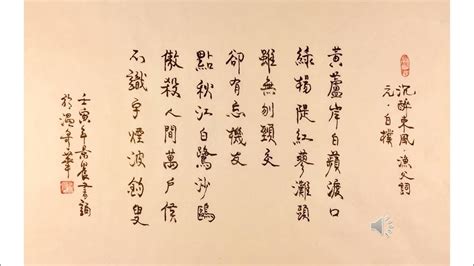 沉醉東風 漁父詞
元·白樸
黃蘆岸白蘋渡口
綠楊隄紅蓼灘頭
雖無刎頸交
卻有忘機友
點秋江白鷺沙鷗
傲殺人間萬戶侯
不識字煙波釣叟
壬寅年書詞
於溫哥華